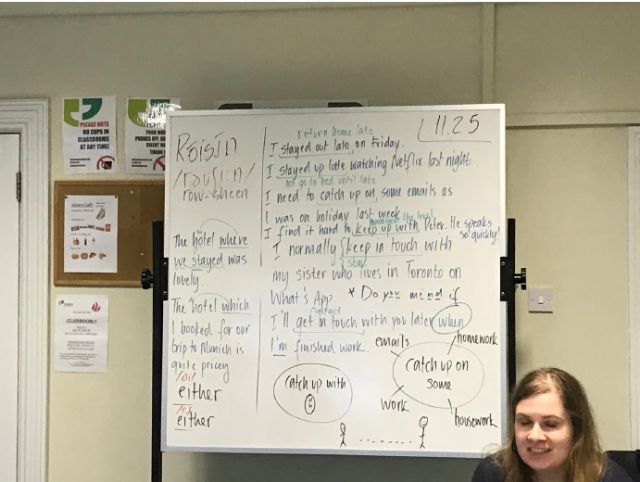 PLEASE NOTE
NO CUPS IN
CLASSROOMS
AT ANY TIME!
PHONES
Róisín
row-sheen
The hotel where
we stayed was
lovely
The hotel which
I booked for our
trip to Munich is
quite pricey
either
either
11.25
return home late
I stayed out late on Friday.
I stayed up late watching Netflix last night.
not go to bed until late
I need to catch up on some emails as
I was on holiday last week
I find it hard to keep up with Peter. He speaks
so quickly!
I normally keep in touch with
stay
my sister who lives in Toronto on
What's App
* Do you mind if
contact
I'll get in touch with you later when
I'm finished work.
catch up with
emails
homework
catch up on
some
work
housework